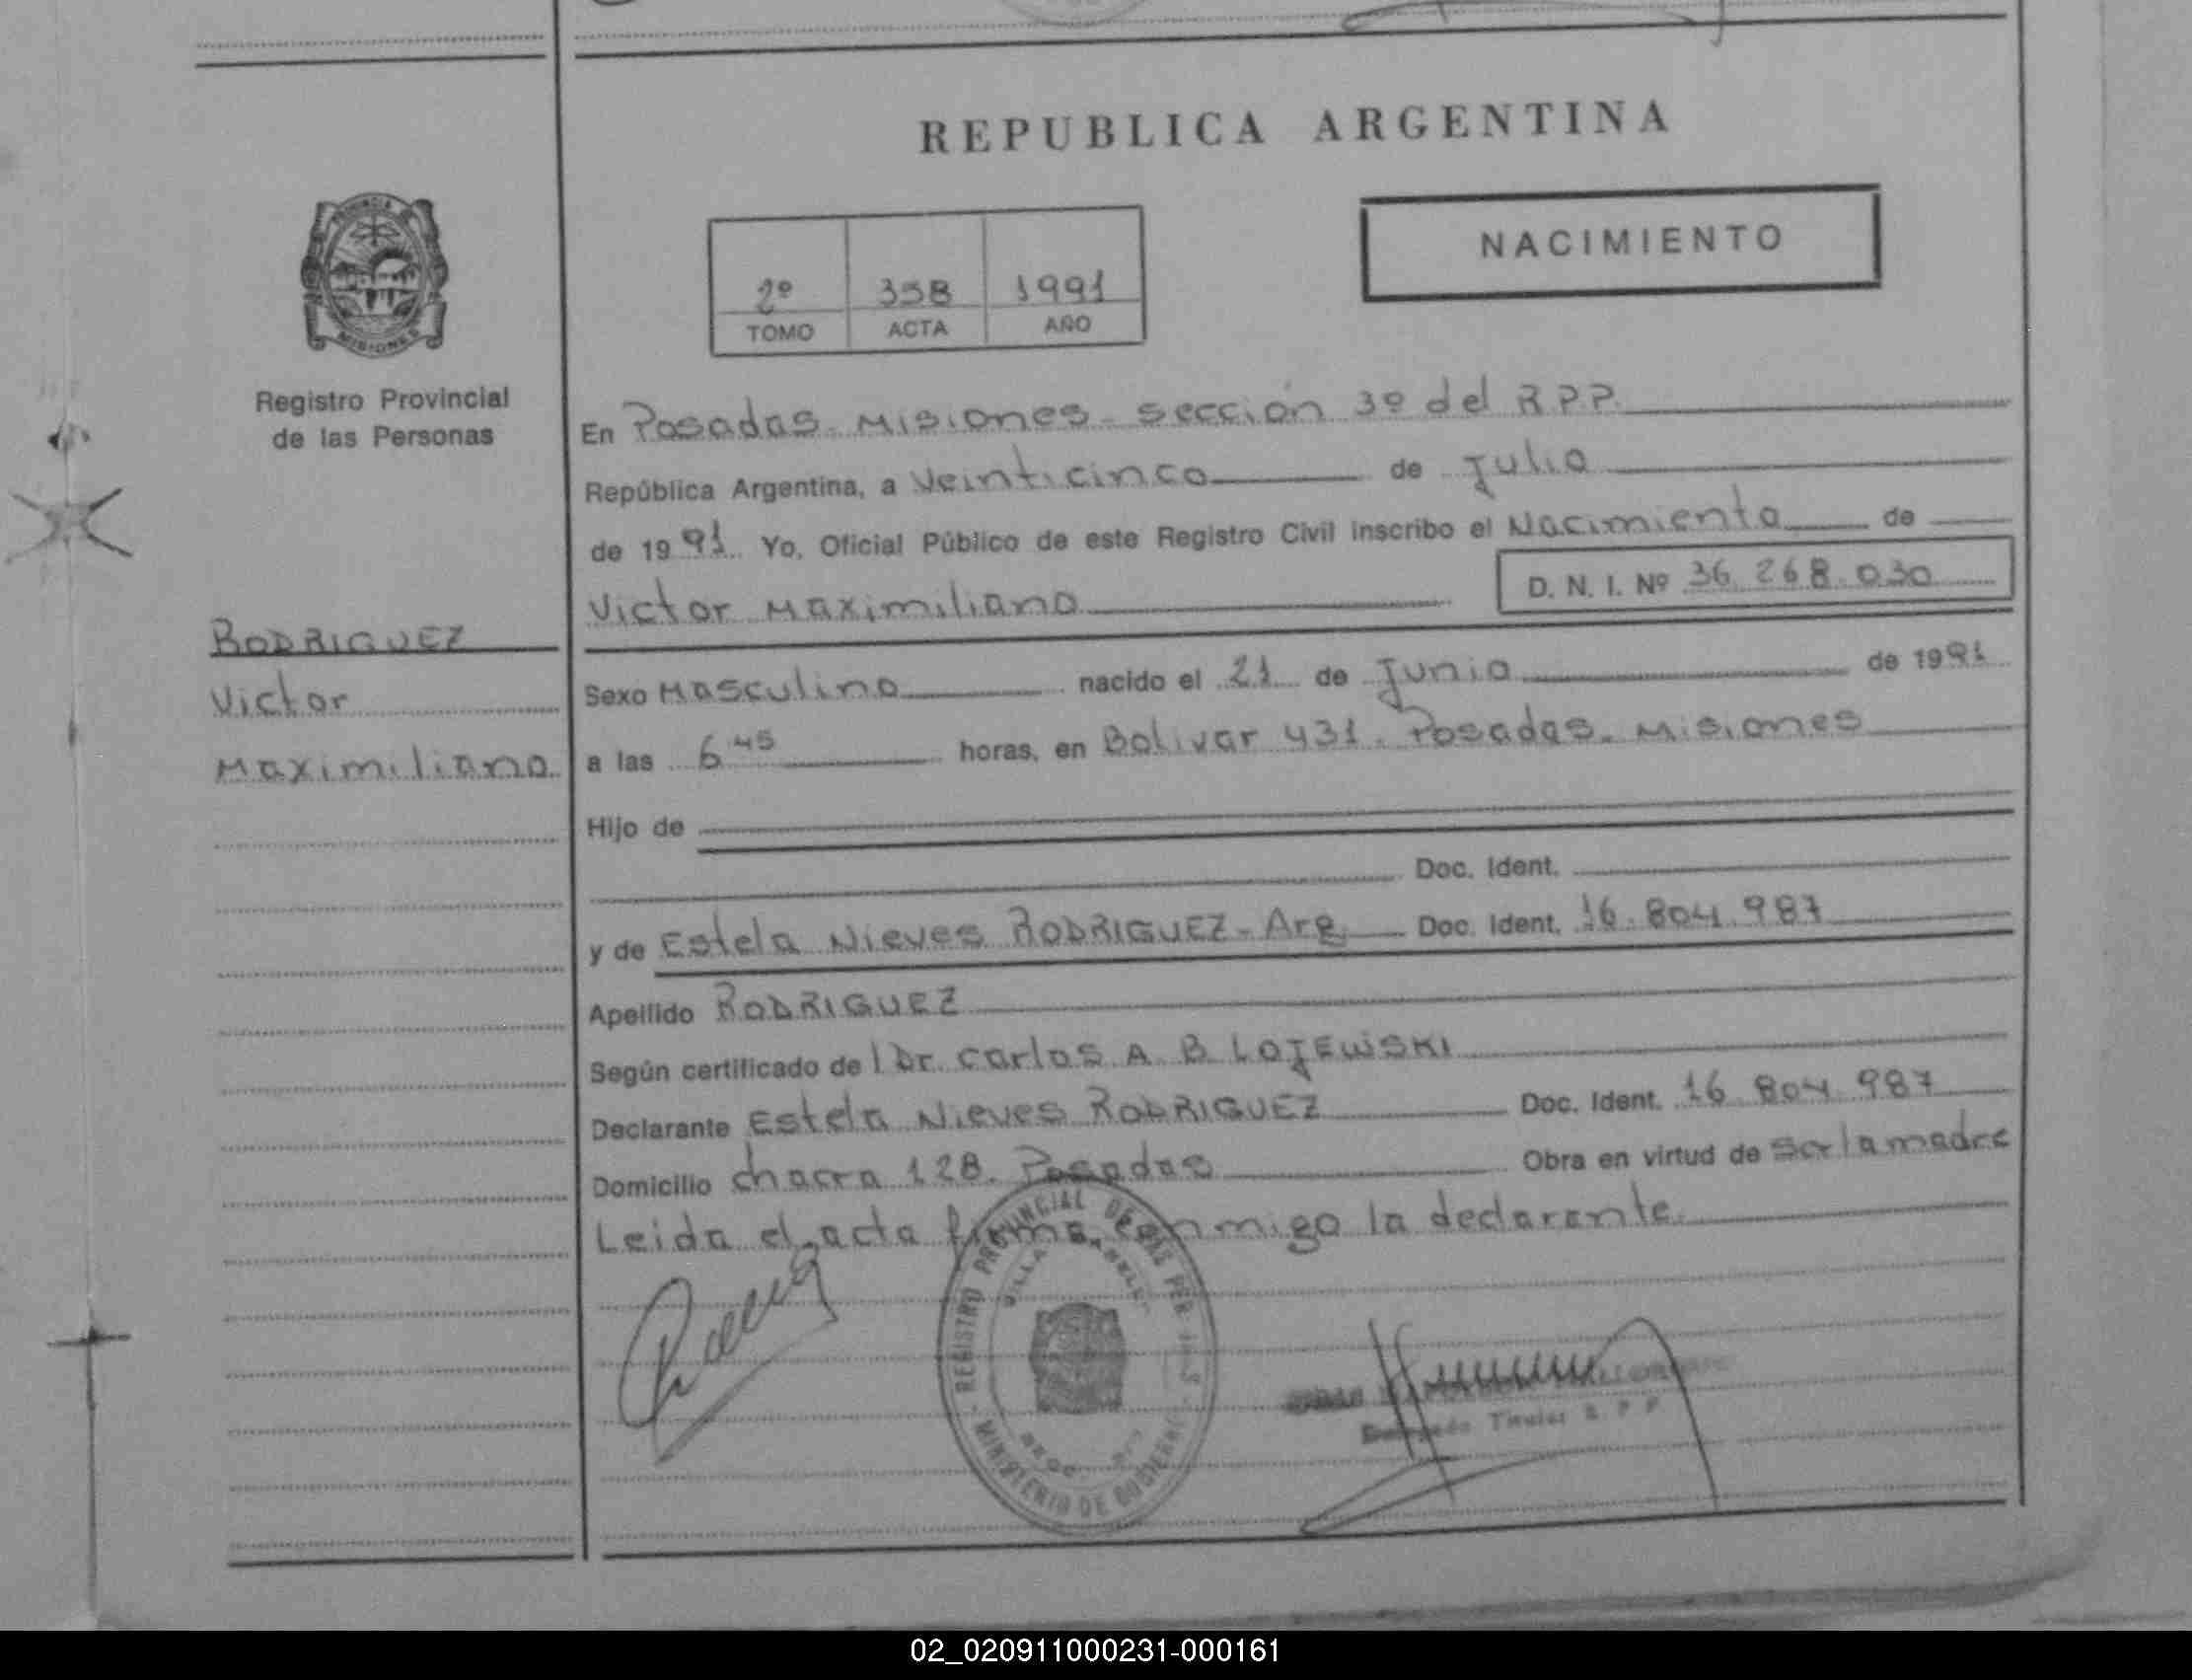 REPUBLICA ARGENTINA
NACIMIENTO
2º 358 1991
TOMO ACTA AÑO
PROVINCIA DE
MISIONES
Registro Provincial
de las Personas
RODRIGUEZ
Victor
Maximiliano
En Posadas. Misiones - sección 3º del R.P.P.
República Argentina, a Veinticinco de Julio
de 1991. Yo, Oficial Público de este Registro Civil inscribo el Nacimiento de
Victor Maximiliano D. N. I. Nº 36.268.030
Sexo Masculino nacido el 21 de Junio de 1991
a las 6 45 horas, en Bolivar 431. Posadas. Misiones
Hijo de
Doc. Ident.
y de Estela Nieves RODRIGUEZ - Arg. Doc. Ident. 16.804.987
Apellido RODRIGUEZ
Según certificado de l Dr. Carlos A. B. LOJEWISKI
Declarante Estela Nieves RODRIGUEZ Doc. Ident. 16.804.987
Domicilio chacra 128. Posadas Obra en virtud de ser la madre
Leida el acta firma conmigo la declarante.
REGISTRO PROVINCIAL DE LAS PER
VILLA
MINISTERIO DE GOBIERNO
Titular R. P. P.
02_020911000231-000161